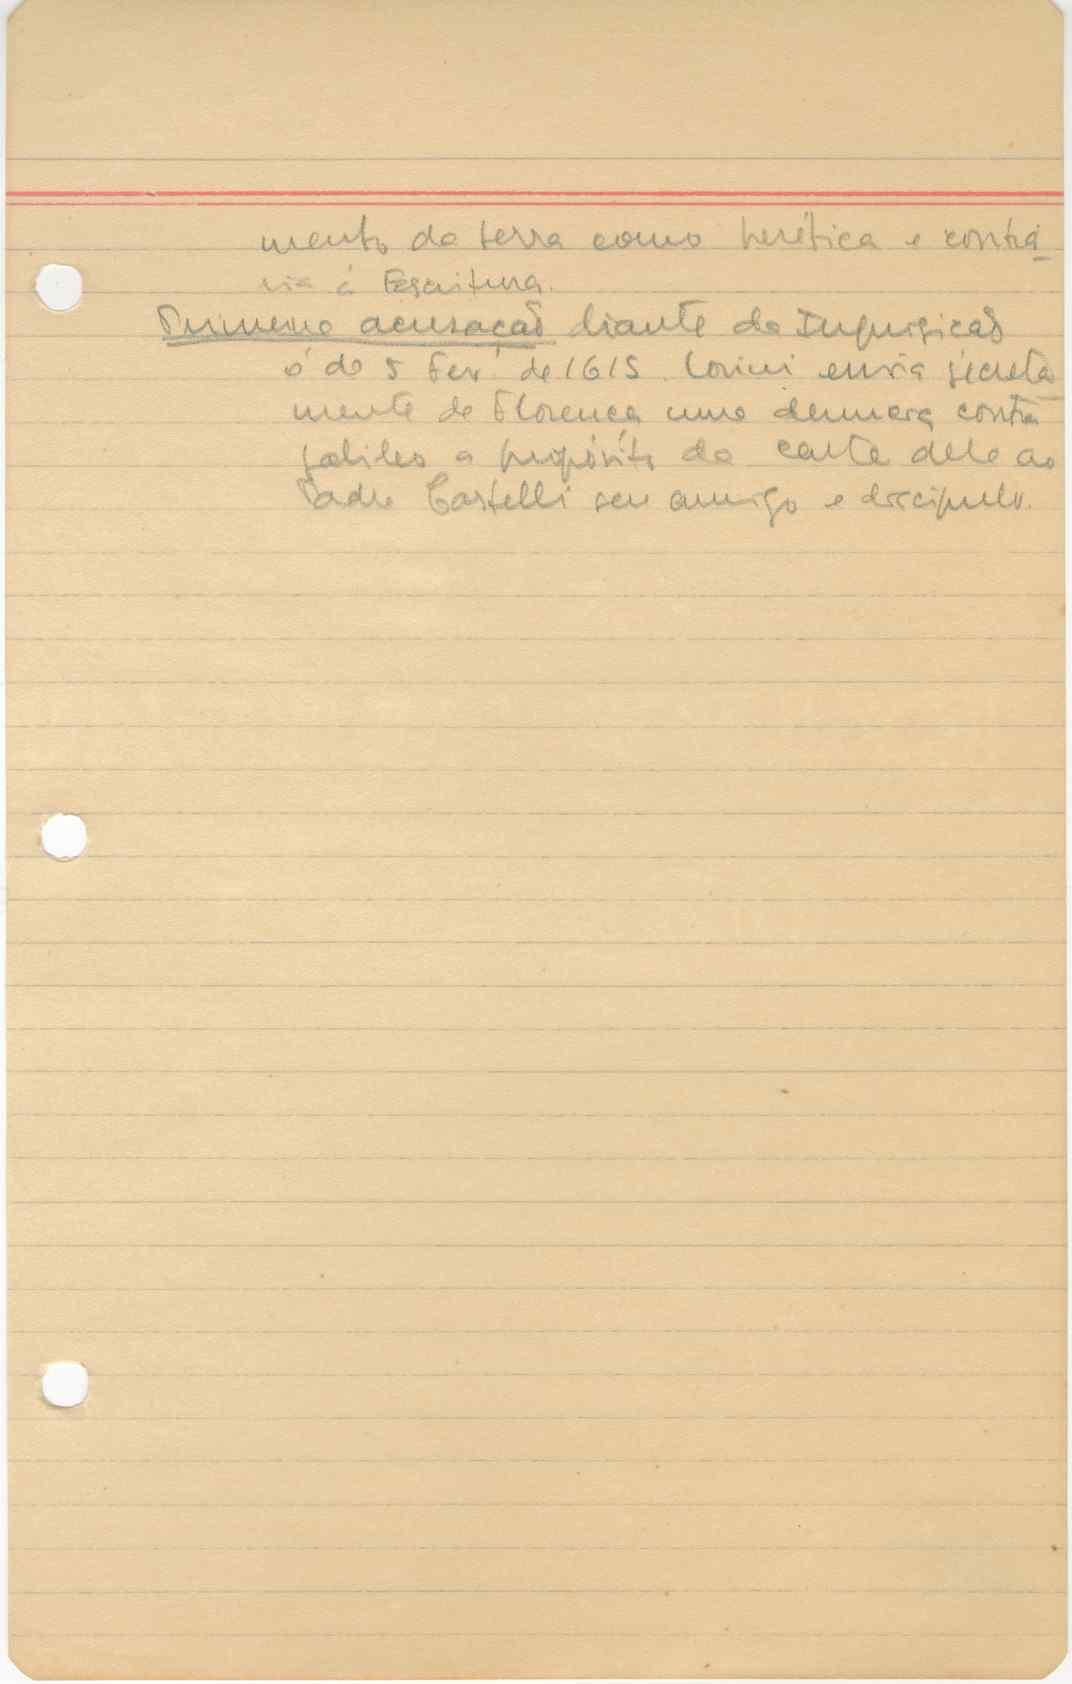 mento da terra como herética e contrá-
ria á Escritura.
Primeira acusação diante da Inquisição
é de 5 Fev. de 1615. Lorini envia secreta-
mente de Florença uma denuncia contra
Galileo a propósito da carta dele ao
Padre Castelli seu amigo e discipulo.